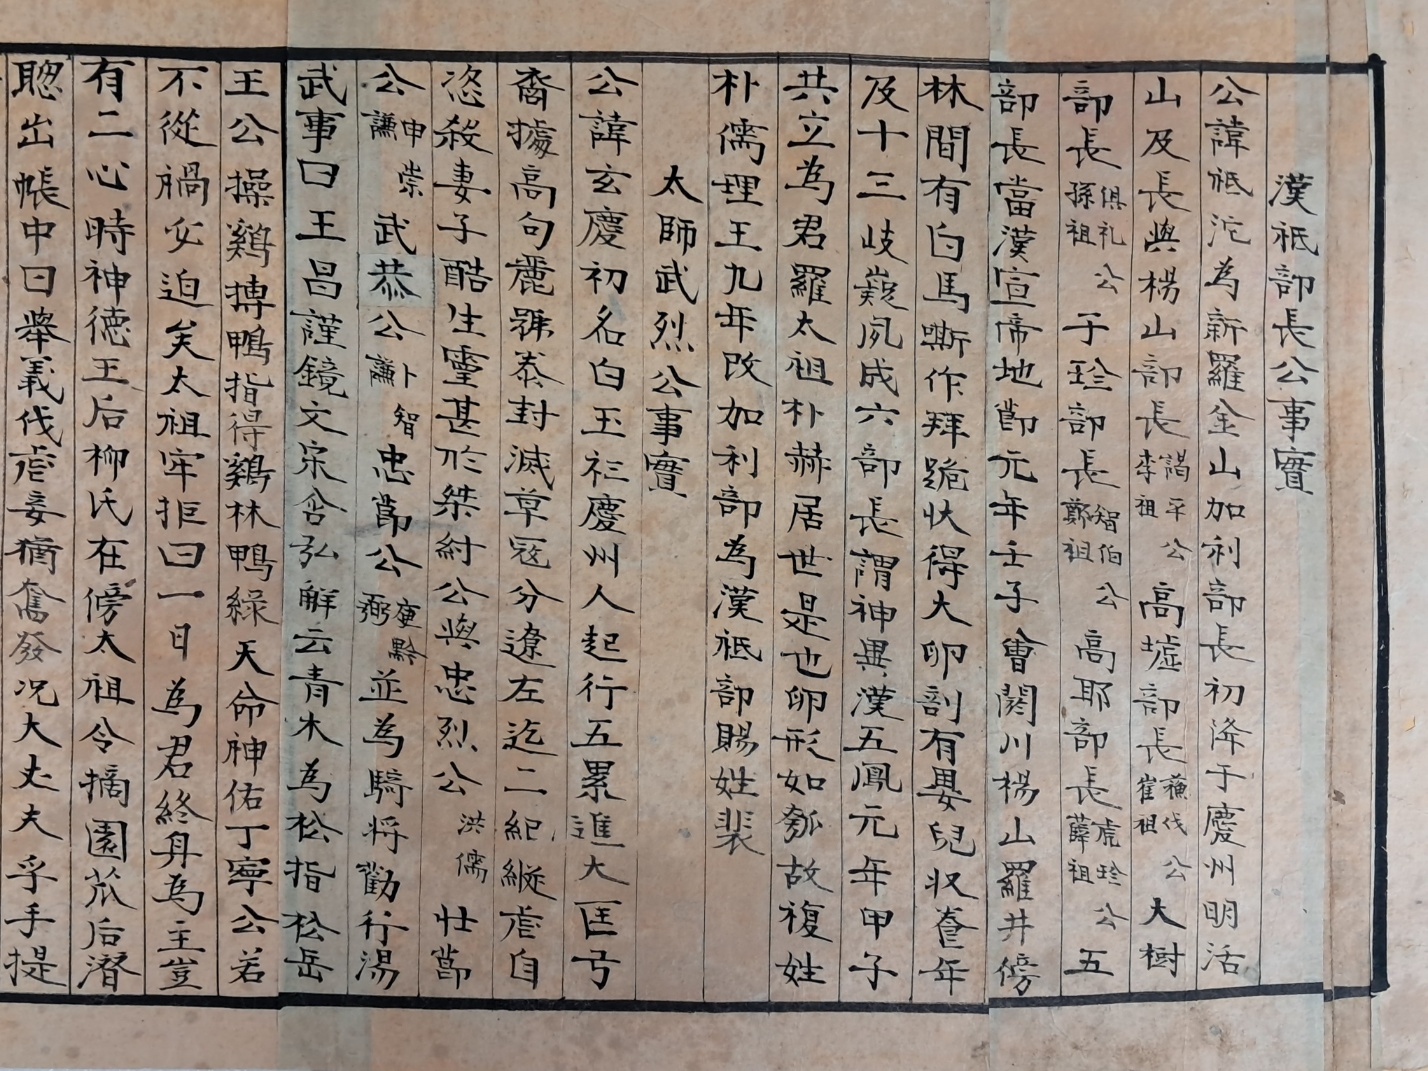 漢祗部長公事實
公諱祗沱為新羅金山加利部長初降于慶州明活
山及長與楊山部長李祖謁平公高墟部長崔祖蘓伐公大樹
部長孫祖俱礼公于珍部長鄭祖智伯公高耶部長薛祖虎珍公五
部長當漢宣帝地節元年壬子會閼川楊山羅井傍
林間有白馬嘶作拜跪狀得大卵剖有嬰兒収養年
及十三歧嶷夙成六部長謂神異漢五鳳元年甲子
共立為君羅太祖朴赫居世是也卵形如瓠故複姓
朴儒理王九年改加利部為漢祗部賜姓裴
太師武烈公事實
公諱玄慶初名白玉衫慶州人起行五累進大匡弓
裔據高句麗號泰封滅草冦分遼左迄二紀縱虐自
恣殺妻子酷生靈甚於桀紂公與忠烈公洪儒壯節
公申崇謙武恭公卜智謙忠節公庾黔弼並為騎将勸行湯
武事曰王昌謹鏡文宋含弘解云青木為松指松岳
王公操鷄搏鴨指得鷄林鴨綠天命神佑丁寧公若
不從禍必迫矣太祖牢拒曰一日為君終身為主豈
有二心時神德王后柳氏在傍太祖令摘園苽后潛
聦出帳中曰舉義伐虐妾猶奮發况大丈夫乎手提